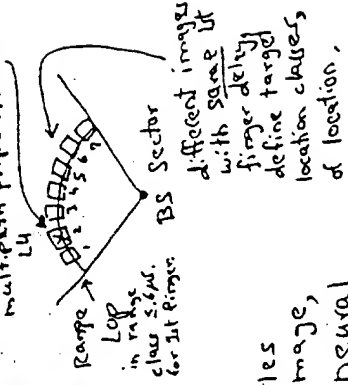 multipath
LU
Range
LOP
in range
class 5.6 µs.
for 1st finger.
1 2 3 4 5 6 7
BS Sector
different images
with same 1st
finger delay
define target
location classes,
of location.
les
mage,
neural